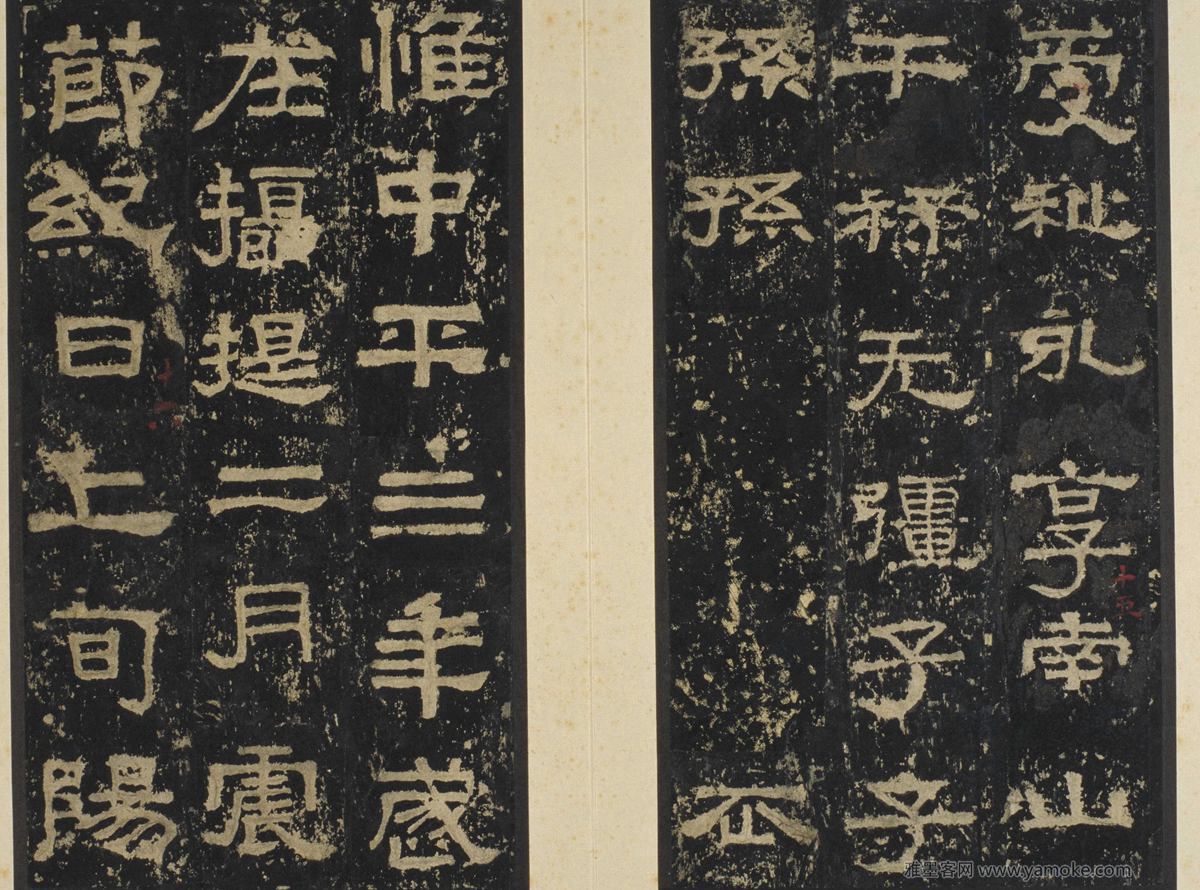 受祉永享南山
干祿无疆子子
孫孫
惟中平三年歲
在攝提二月震
節紀日上旬陽
雅墨客网 www.yamoke.com